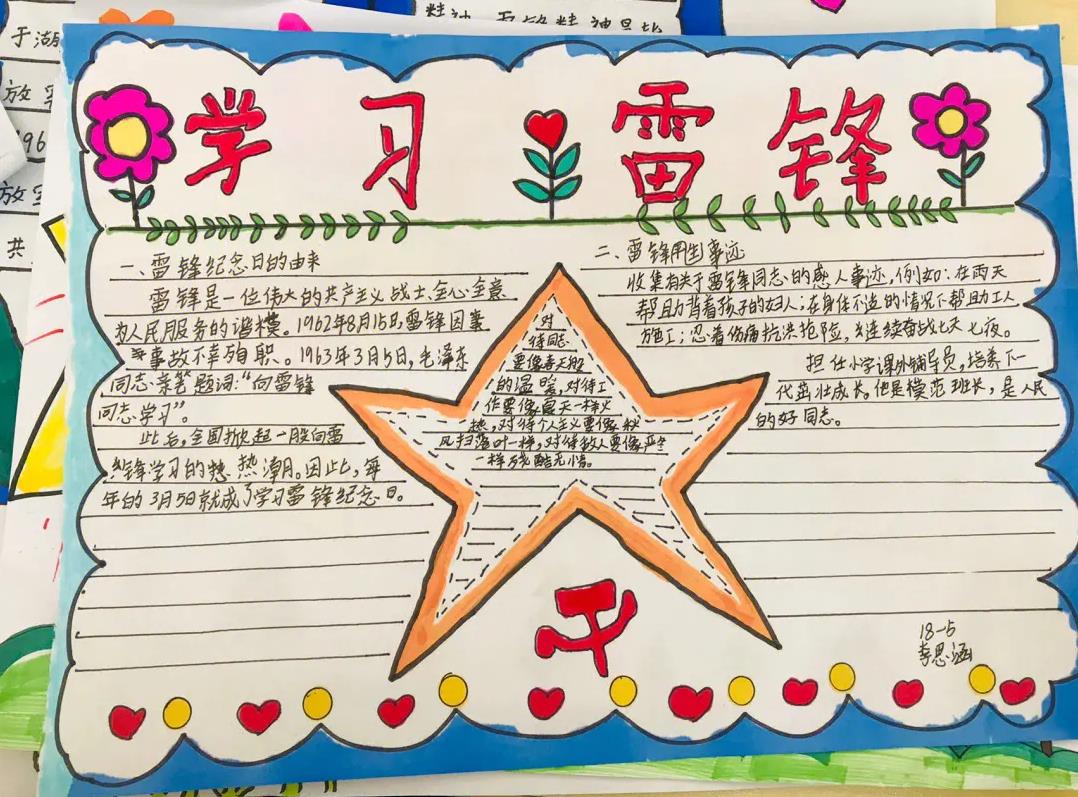 学习雷锋
一、雷锋纪念日的由来
雷锋是一位伟大的共产主义战士、全心全意
为人民服务的谐模。1962年8月15日,雷锋因
事故不幸殉职。1963年3月5日,毛泽东
同志亲笔题词:“向雷锋
同志学习”。
此后,全国掀起一股向雷
锋学习的热热潮。因此,每
年的3月5日就成了学习雷锋纪念日。
对
待同志
要像春天般
的温暖,对待工
作要像夏天一样火
热,对待个人主义要像秋
风扫落叶一样,对待敌人要像严冬
一样残酷无情。
二、雷锋用生事迹
收集有关于雷锋同志的感人事迹,例如:在雨天
帮助背着孩子的妇人;在身体不适的情况下帮助工人
施工;忍着伤痛抗洪抢险,连续奋战七天七夜。
担任小学课外辅导员,培养下一
代茁壮成长。他是模范班长,是人民
的好同志。
18-5
李思涵
于湖
放
196
放
共
精神